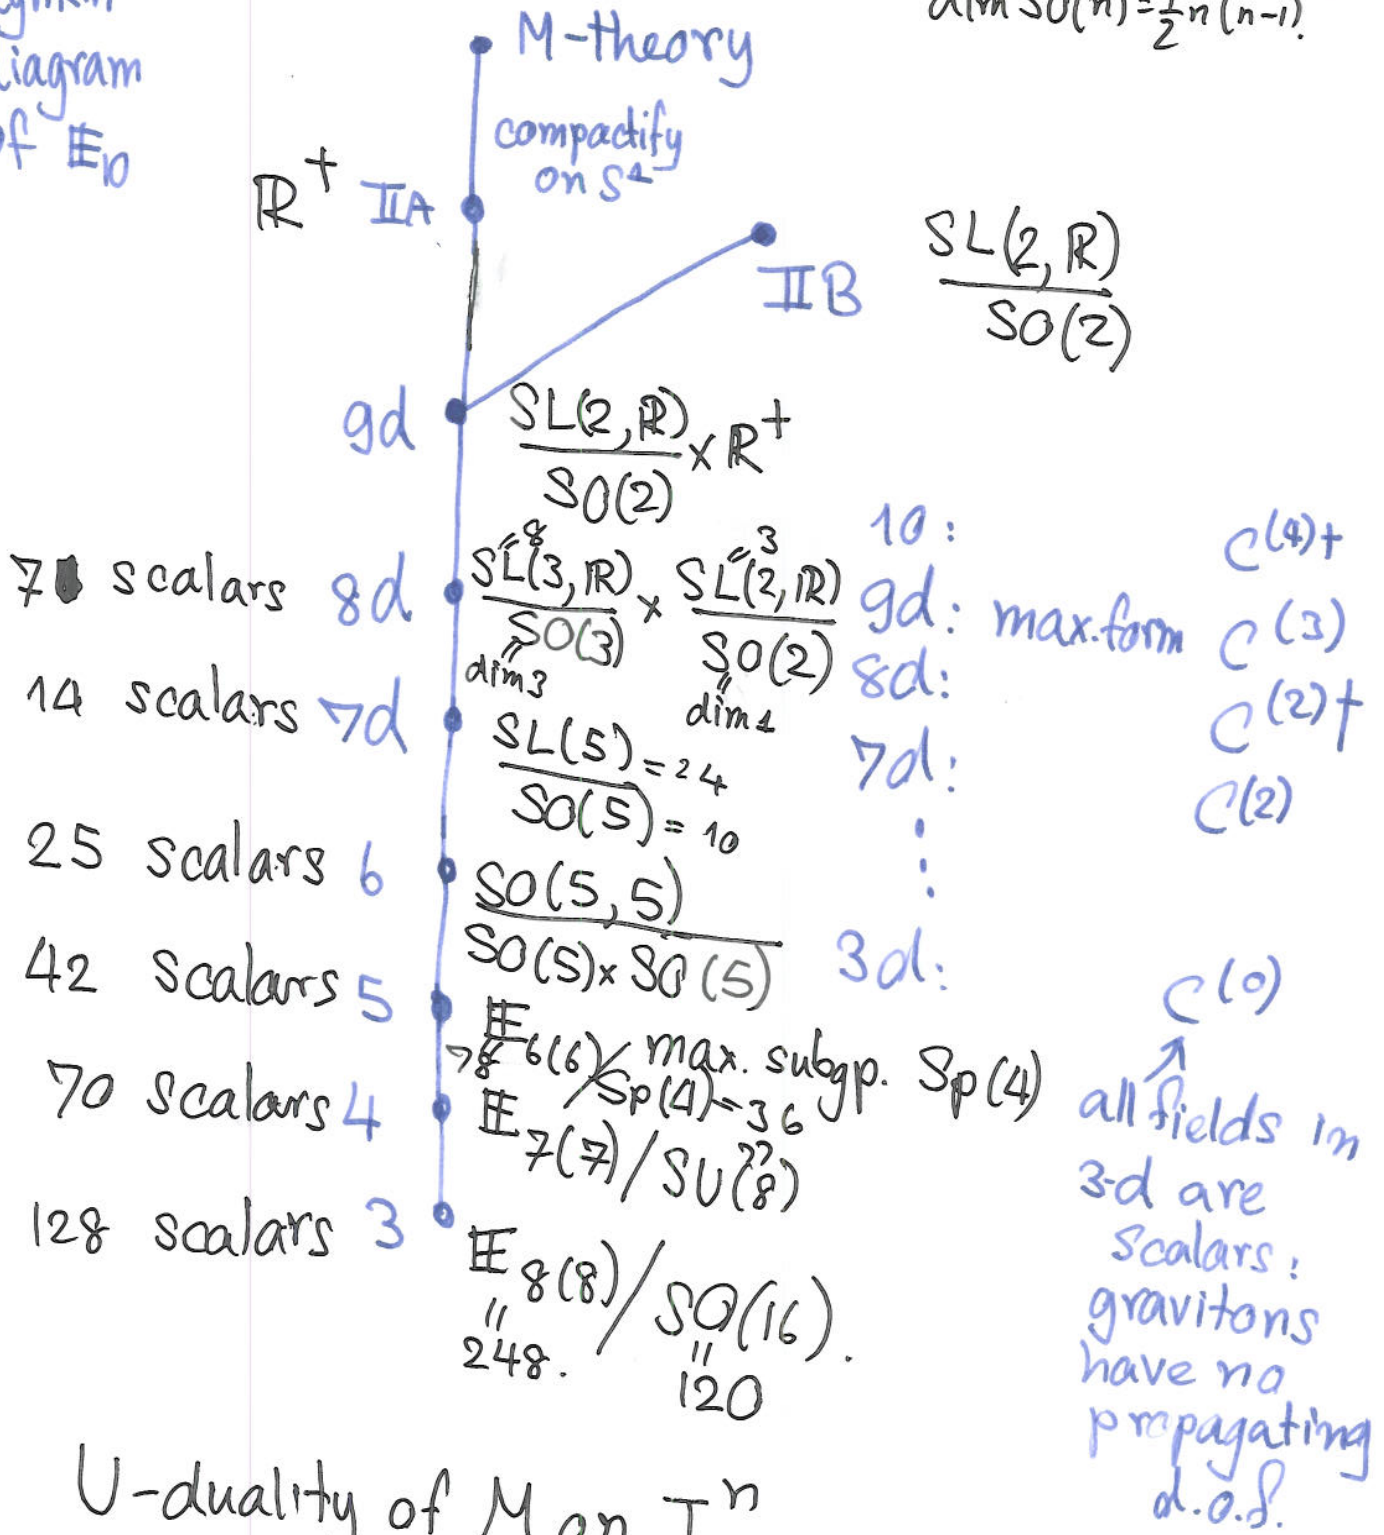 dim SO(n) = ½ n (n-1).
diagram
of E₁₀
M-theory
compactify
on S¹
ℝ⁺ IIA
IIB
SL(2, ℝ)
SO(2)
9d
SL(2, ℝ) × ℝ⁺
SO(2)
7 scalars 8d
=8
SL(3, ℝ) × SL(2, ℝ)
=3
SO(3)
dim 3
SO(2)
dim 1
14 scalars 7d
SL(5) = 24
SO(5) = 10
25 scalars 6
SO(5, 5)
SO(5) × SO(5)
42 scalars 5
E₆₍₆₎ / max. subgp. Sp(4)
78
Sp(4) = 36
70 scalars 4
E₇₍₇₎ / SU(8)
128 scalars 3
E₈₍₈₎ / SO(16).
=
248.
=
120
10 : C⁽⁴⁾⁺
9d : max. form C⁽³⁾
8d : C⁽²⁾⁺
7d : C⁽²⁾
3d : C⁽⁰⁾
all fields in
3-d are
scalars :
gravitons
have no
propagating
d.o.f.
U-duality of M on Tⁿ